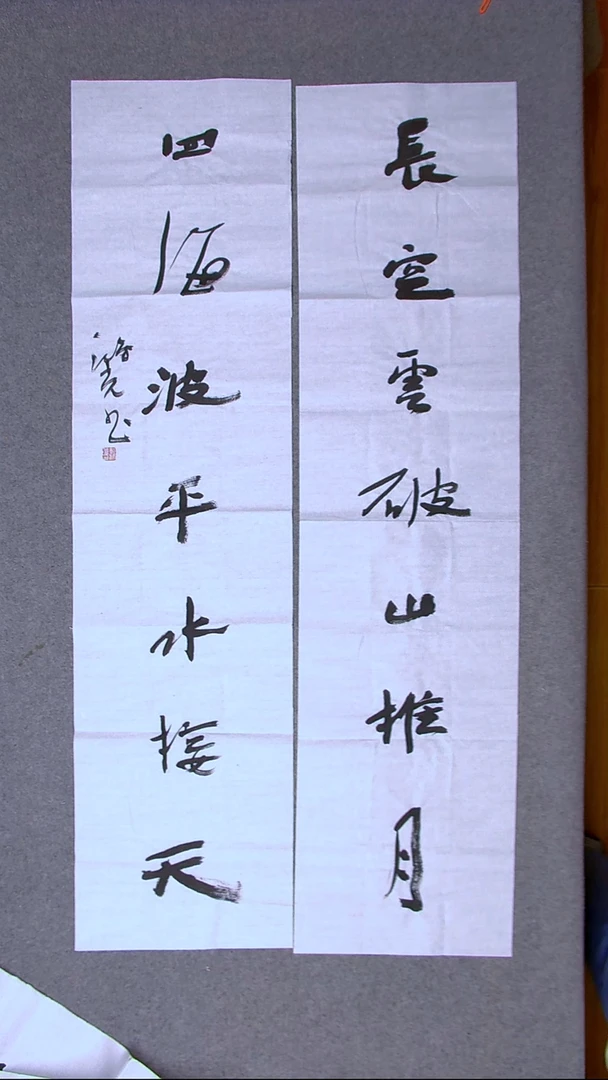 長空雲破山推月
四海波平水接天